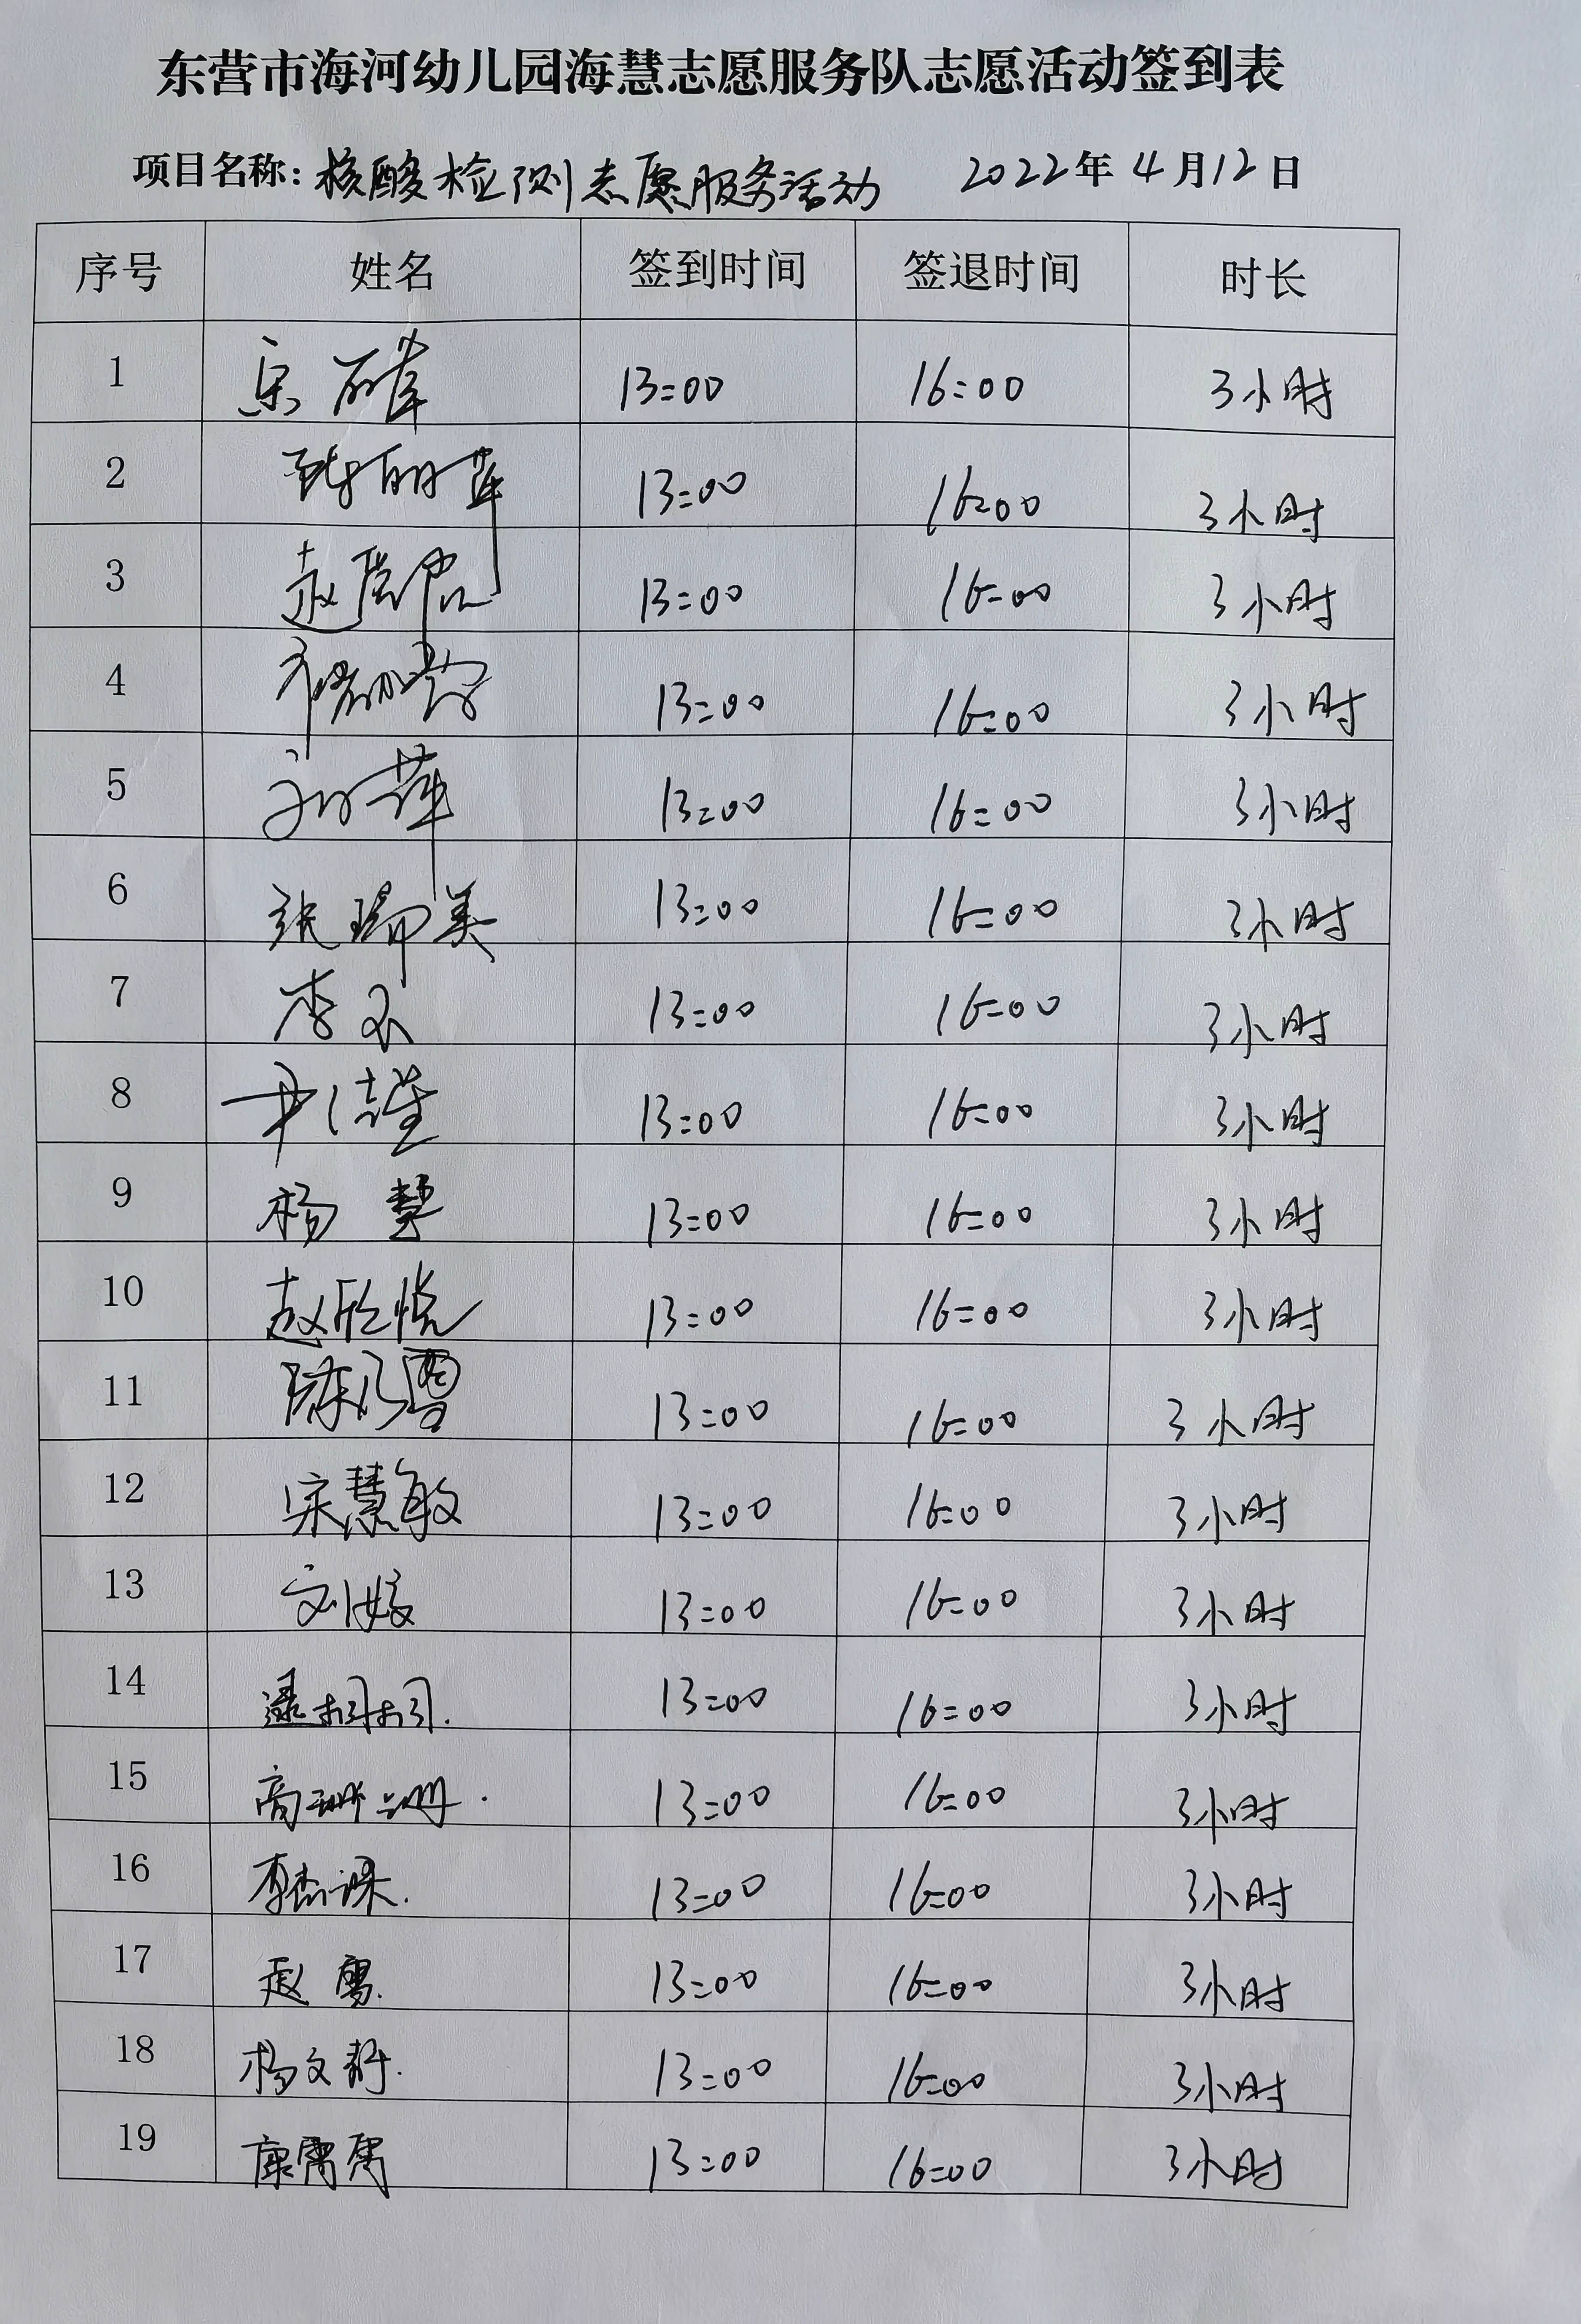 东营市海河幼儿园海慧志愿服务队志愿活动签到表
项目名称：核酸检测志愿服务活动 2022年4月12日
序号 姓名 签到时间 签退时间 时长
1 13:00 16:00 3小时
2 13:00 16:00 3小时
3 赵 13:00 16:00 3小时
4 13:00 16:00 3小时
5 13:00 16:00 3小时
6 张瑞美 13:00 16:00 3小时
7 李 13:00 16:00 3小时
8 13:00 16:00 3小时
9 杨慧 13:00 16:00 3小时
10 赵欣悦 13:00 16:00 3小时
11 陈 13:00 16:00 3小时
12 宋慧敏 13:00 16:00 3小时
13 刘 13:00 16:00 3小时
14 13:00 16:00 3小时
15 商珊珊. 13:00 16:00 3小时
16 李 13:00 16:00 3小时
17 赵 13:00 16:00 3小时
18 杨文 13:00 16:00 3小时
19 康 13:00 16:00 3小时